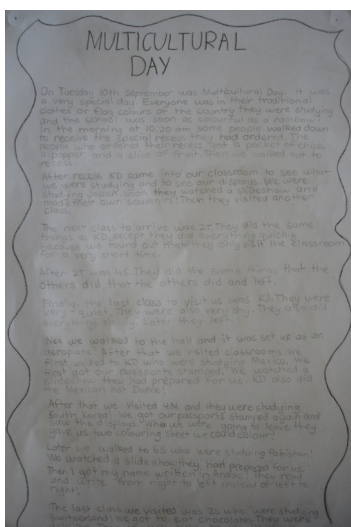 MULTICULTURAL
DAY
On Tuesday 10th September was Multicultural Day. It was
a very special day. Everyone was in their traditional
clothes or flag colours of the country they were studying
and the school was soon as colourful as a rainbow!
In the morning at 10.20 am, some people walked down
to receive the special recess they had ordered. The
people who ordered their recess got a packet of chips,
a popper and a slice of fruit. Then we walked out to
recess.
After recess KD came into our classroom to see what
we were studying and to see our displays. We were
studying Japan. they watched a slideshow and
made their own Then they visited another
class.
The next class to arrive was 2T. They did the same
things as KD, except they did everything quickly
because we found out that they only visit the classroom
for a very short time.
After 2T was 4S. They did the same things that the
others did that the others did and left.
Finally, the last class to visit us was KJ. They were
very quiet. They were also very shy. They also did
everything slowly. Later they left.
we walked to the hall and it was set up as an
aeroplane. After that we visited classrooms. We
first walked to KD who were studying Mexico. We
first got our passports stamped. We watched a
slideshow they had prepared for us. KD also did
the Mexican Hat Dance!
After that we visited 4M and they were studying
South Korea! We got our passports stamped again and
saw the displays. When we were going to leave they
give us two colouring sheet we could colour!
Later we walked to 6S who were studying Pakistan!
We watched a slide show they had prepared for us.
Then I got my name written in Arabic! They read
and write from right to left instead of left to
right.
The last class we visited was 2S who were studying
Switzerland! We got to eat chocolate. They were